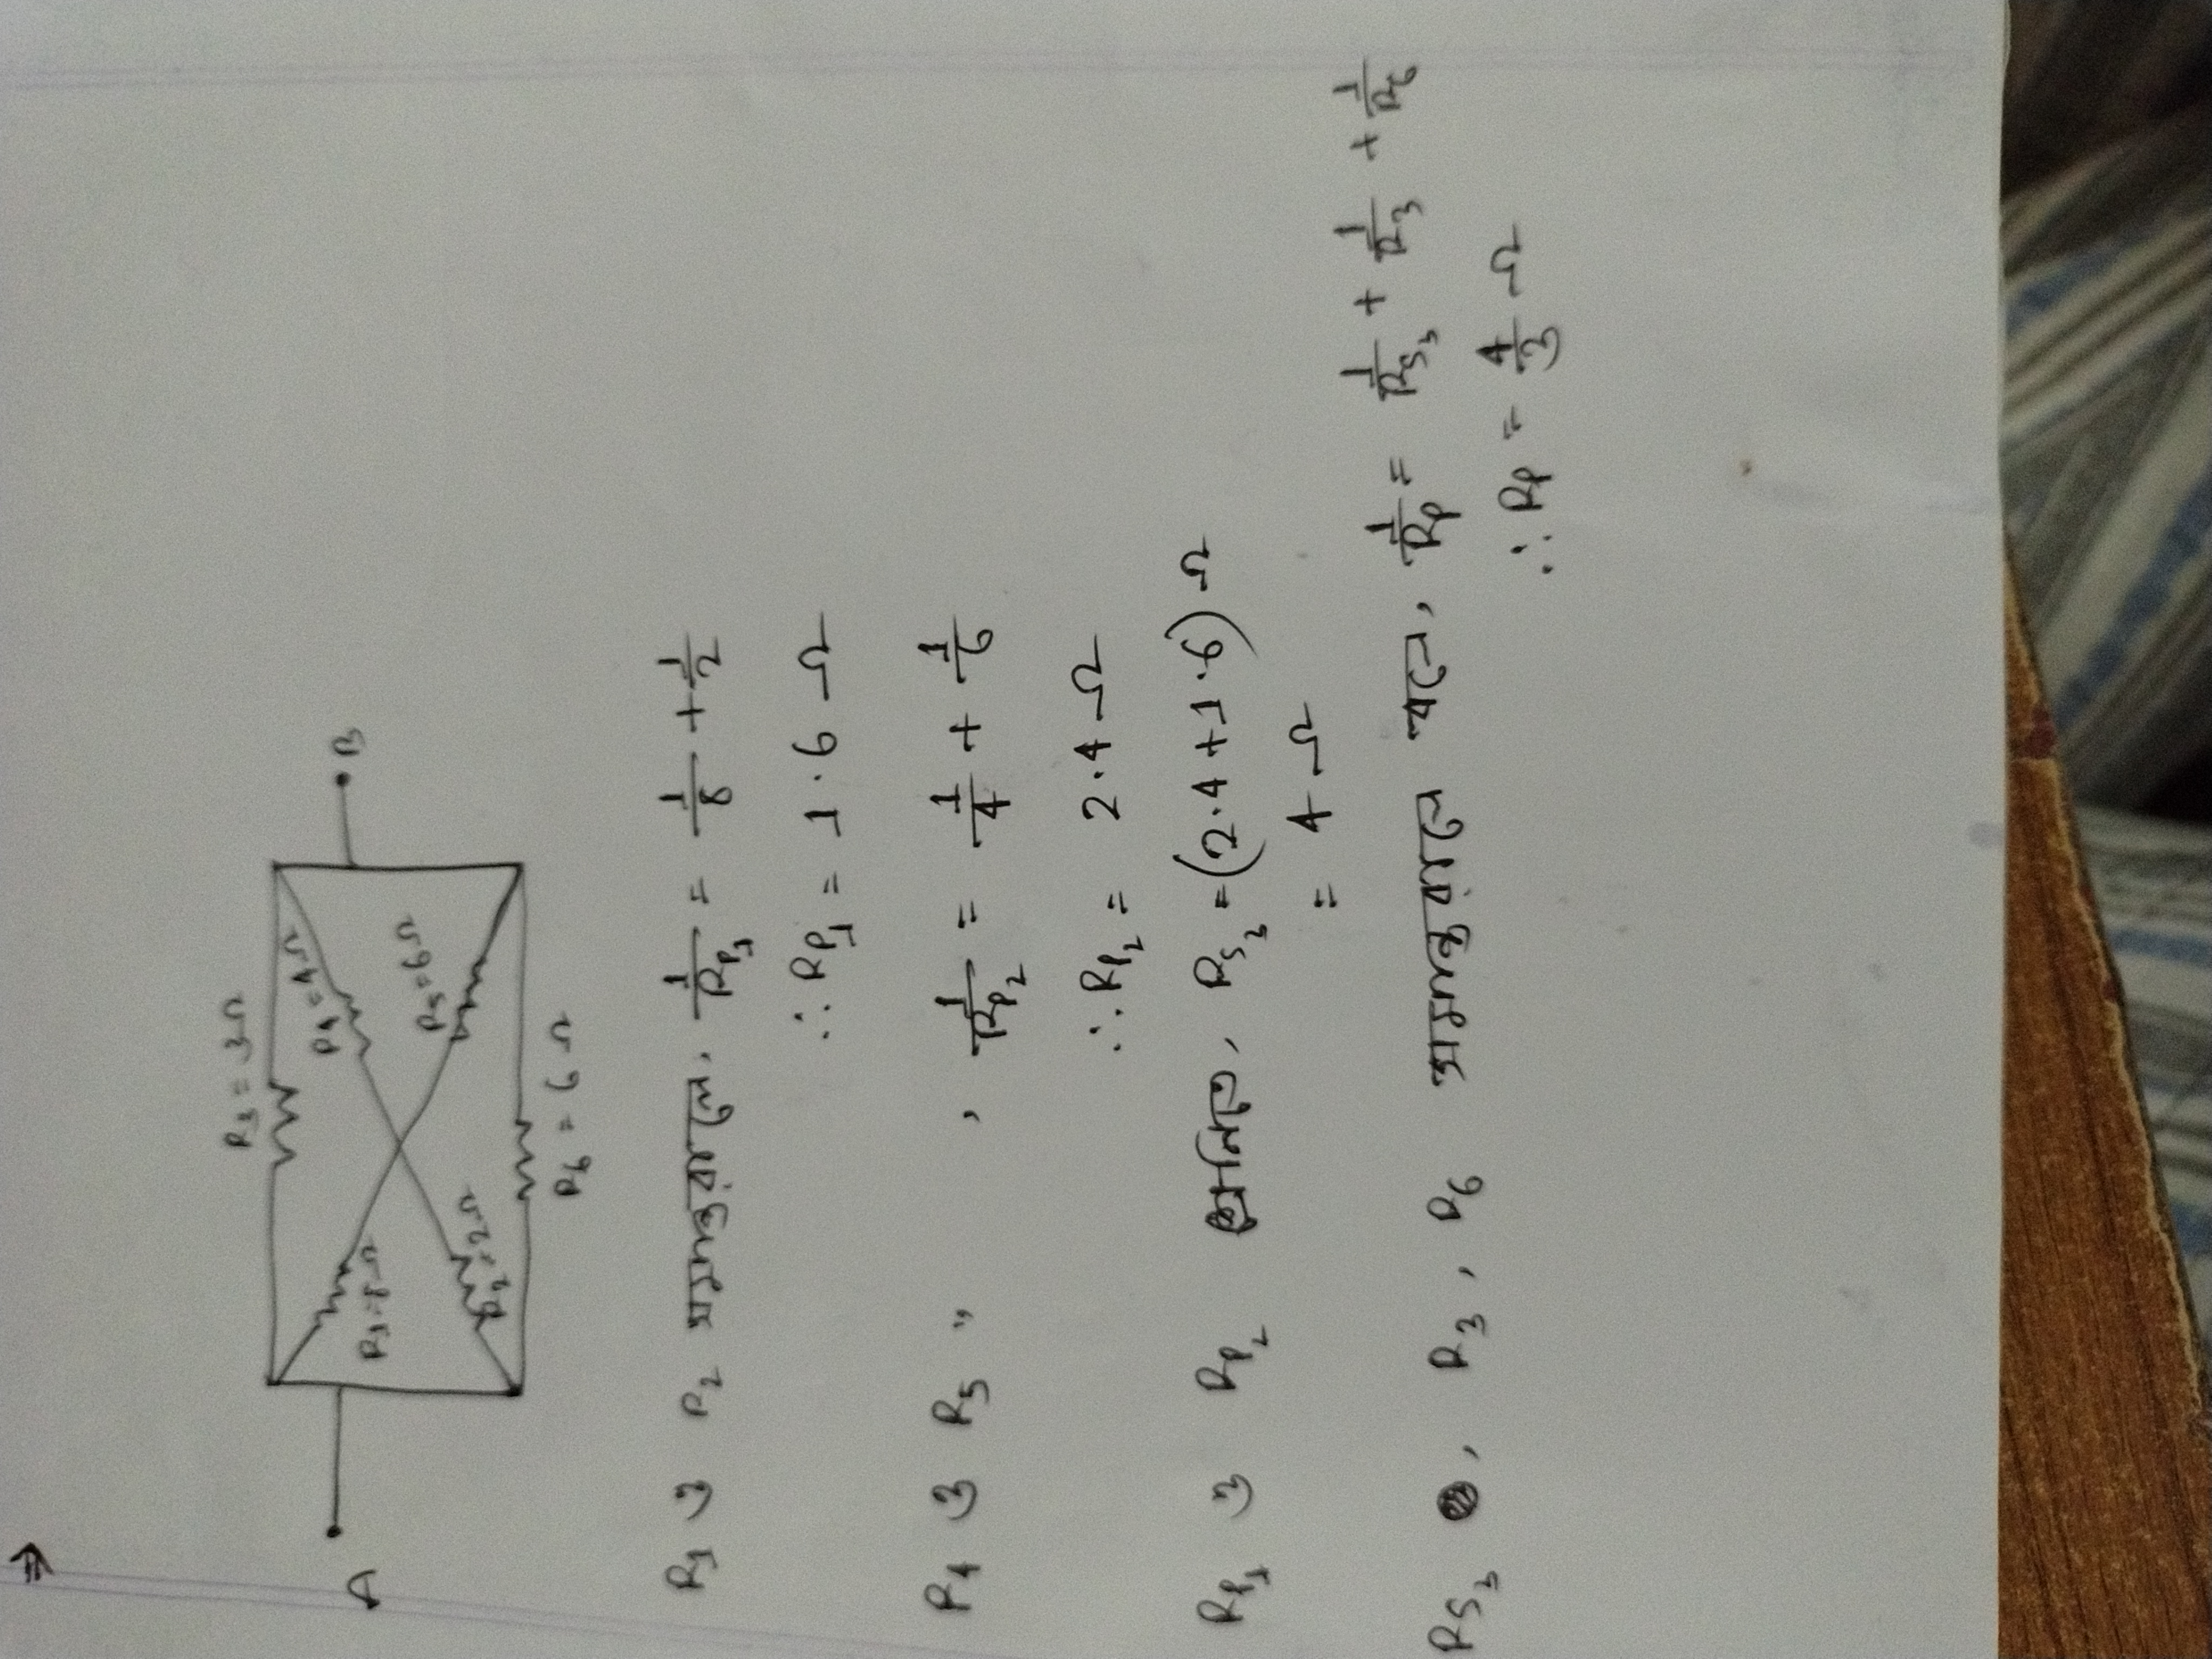 ⇒
R₃ = 3Ω
R₄ = 4Ω
R₅ = 6Ω
A
B
R₁ = 8Ω
R₂ = 2Ω
R₆ = 6Ω
R₁ ও R₂ সমান্তরালে, 1/Rp₁ = 1/8 + 1/2
∴ Rp₁ = 1.6 Ω
R₄ ও R₅ " , 1/Rp₂ = 1/4 + 1/6
∴ Rp₂ = 2.4 Ω
Rp₁ ও Rp₂ শ্রেণিতে, Rs₁ = (2.4 + 1.6) Ω
= 4 Ω
Rs₁ , R₃, R₆ সমান্তরালে বলে, 1/Rp = 1/Rs₁ + 1/R₃ + 1/R₆
∴ Rp = 4/3 Ω